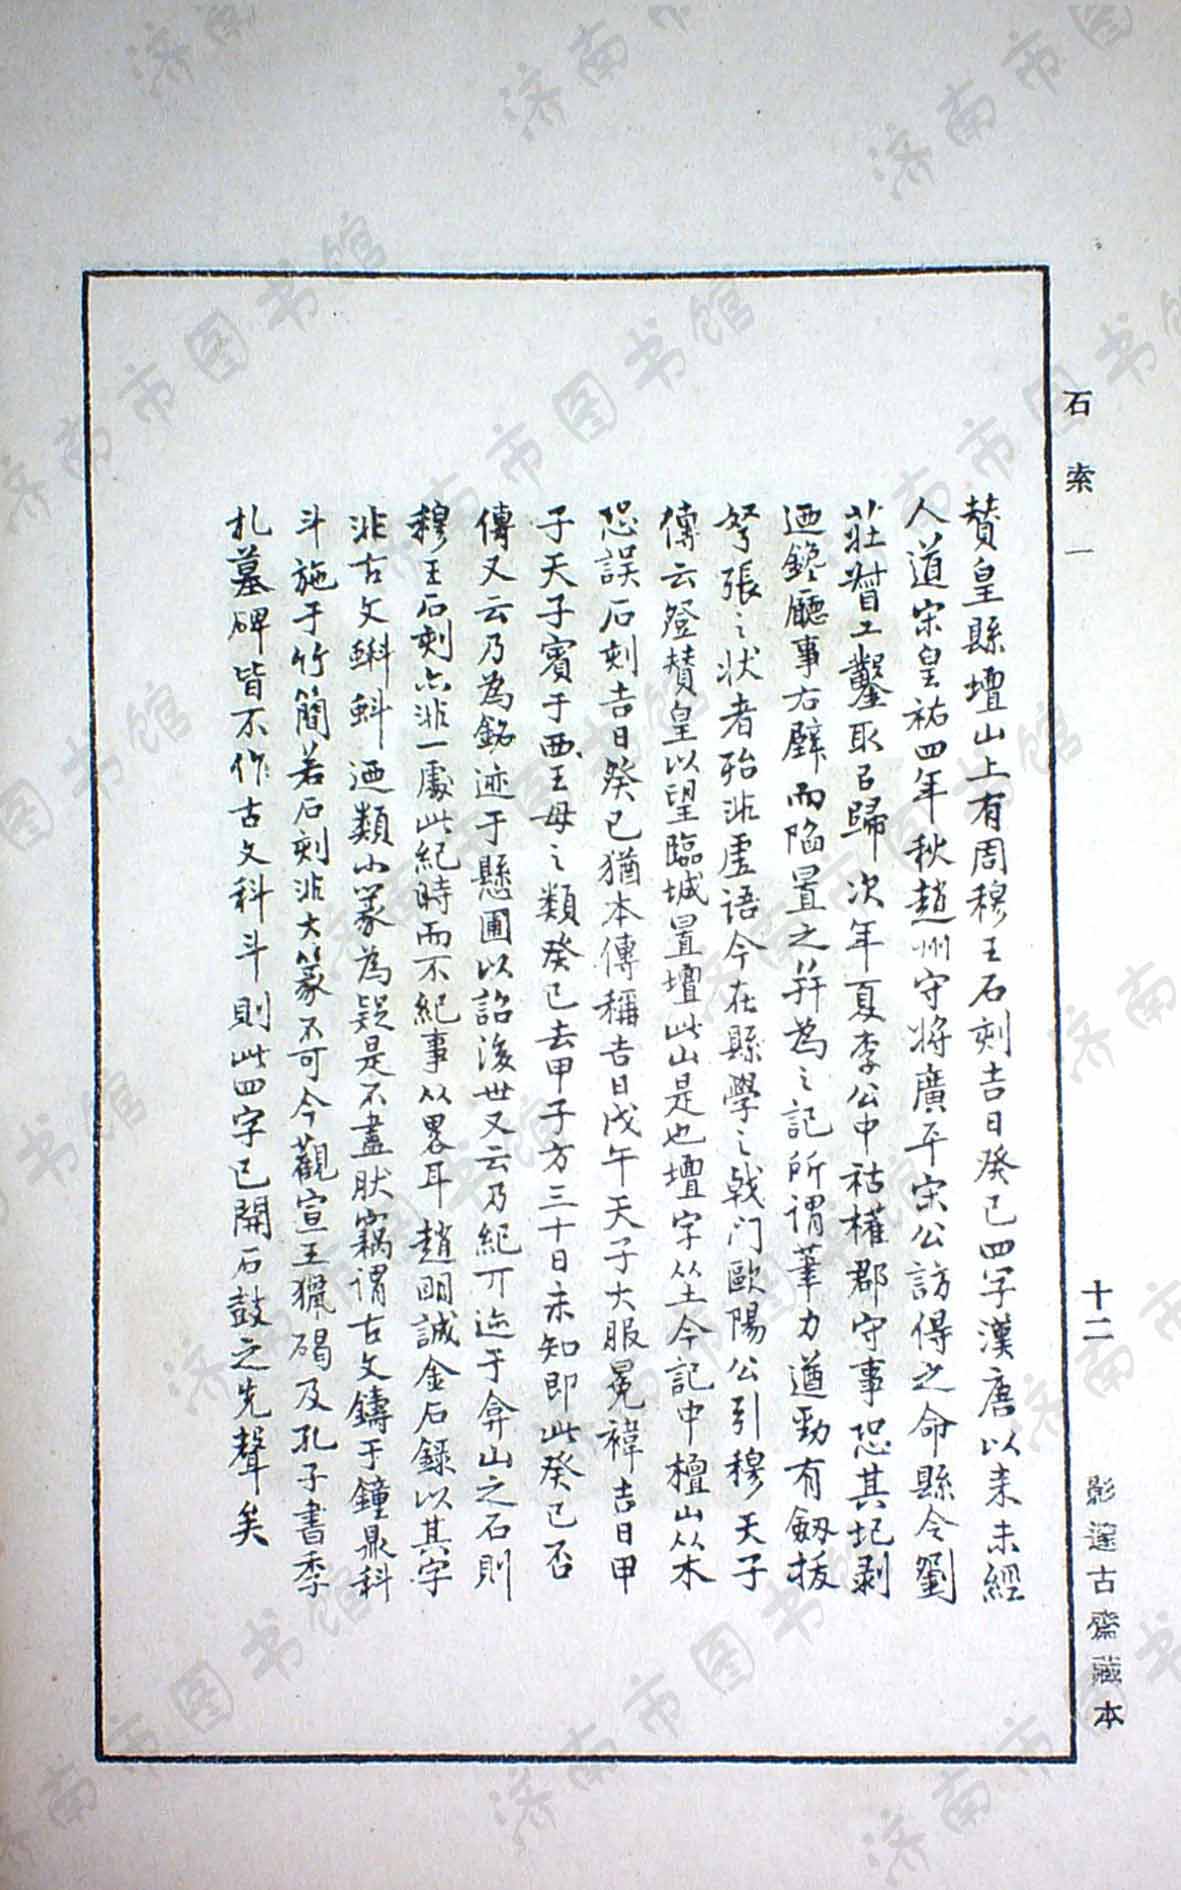 石索一
十二
影邃古齋藏本
贊皇縣壇山上有周穆王石刻吉日癸巳四字漢唐以来未經
人道宋皇祐四年秋趙州守将廣平宋公訪得之命縣令劉
莊督工鑿取㠯歸次年夏李公中祜權郡守事恐其圮剥
迺鑱廳事右壁而陷置之并為之記所謂筆力遒勁有劔拔
弩張之状者殆非虚语今在縣學之戟门歐陽公引穆天子
傳云登贊皇以望臨城置壇此山是也壇字从土今記中檀山从木
恐誤石刻吉日癸巳猶本傳稱吉日戊午天子大服冕褘吉日甲
子天子賓于西王母之類癸巳去甲子方三十日未知即此癸巳否
傳又云乃為銘迹于懸圃以詔後世又云乃紀丌迹于弇山之石則
穆王石刻亦非一處此紀時而不紀事从畧耳趙明誠金石録以其字
非古文蝌蚪迺類小篆為疑是不盡肰竊谓古文鑄于鐘鼎科
斗施于竹簡若石刻非大篆不可今觀宣王獵碣及孔子書季
札墓碑皆不作古文科斗則此四字已開石鼓之先聲矣
济南市图书馆